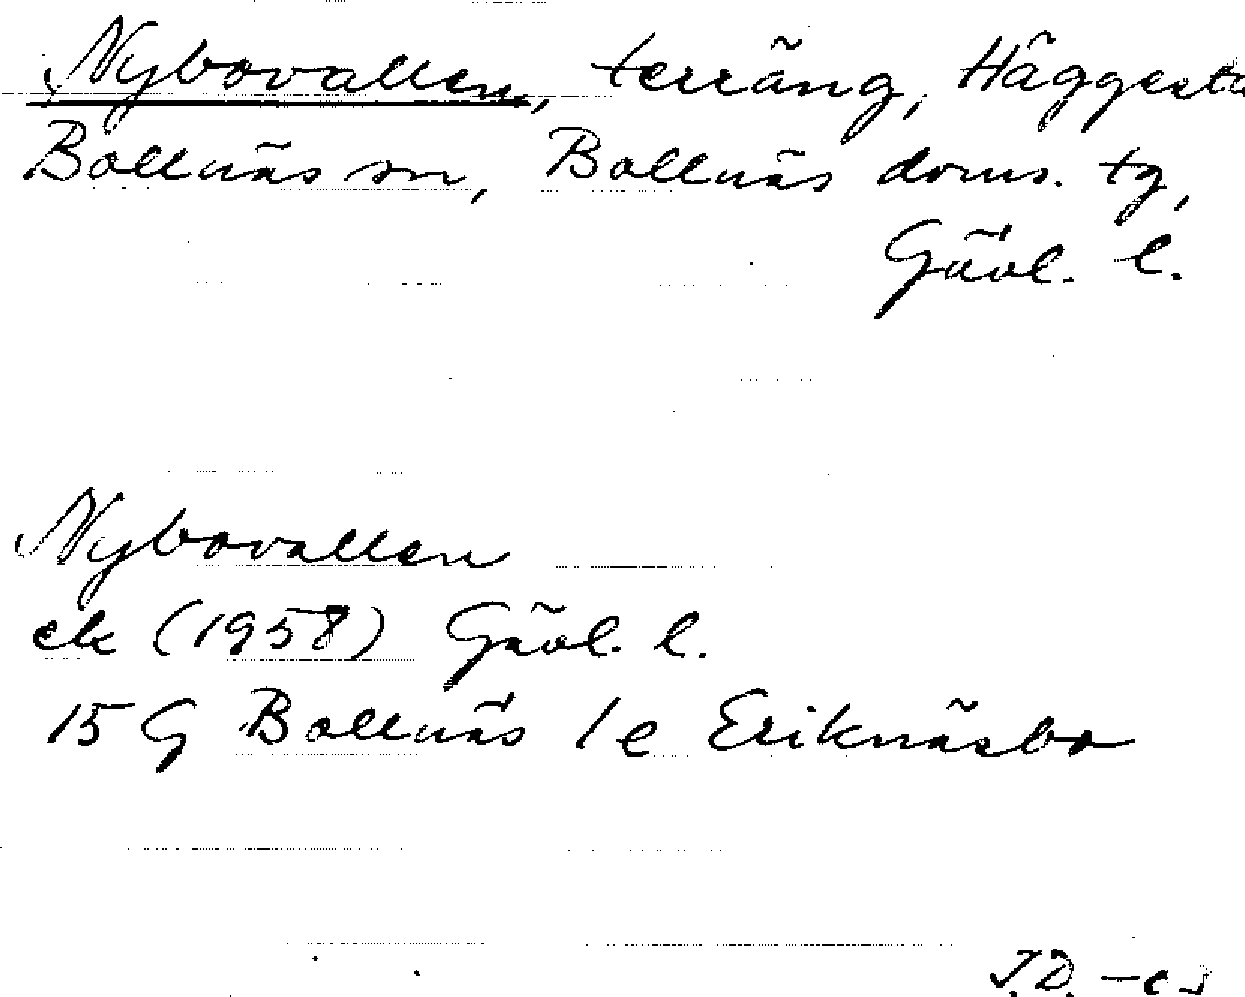 Nybovallen, terräng, Häggesta
Bollnäs sn, Bollnäs doms. tg,
Gävl. l.
Nybovallen
ek (1958) Gävl. l.
15 G Bollnäs 1 e Eriknäsbo
J.D.